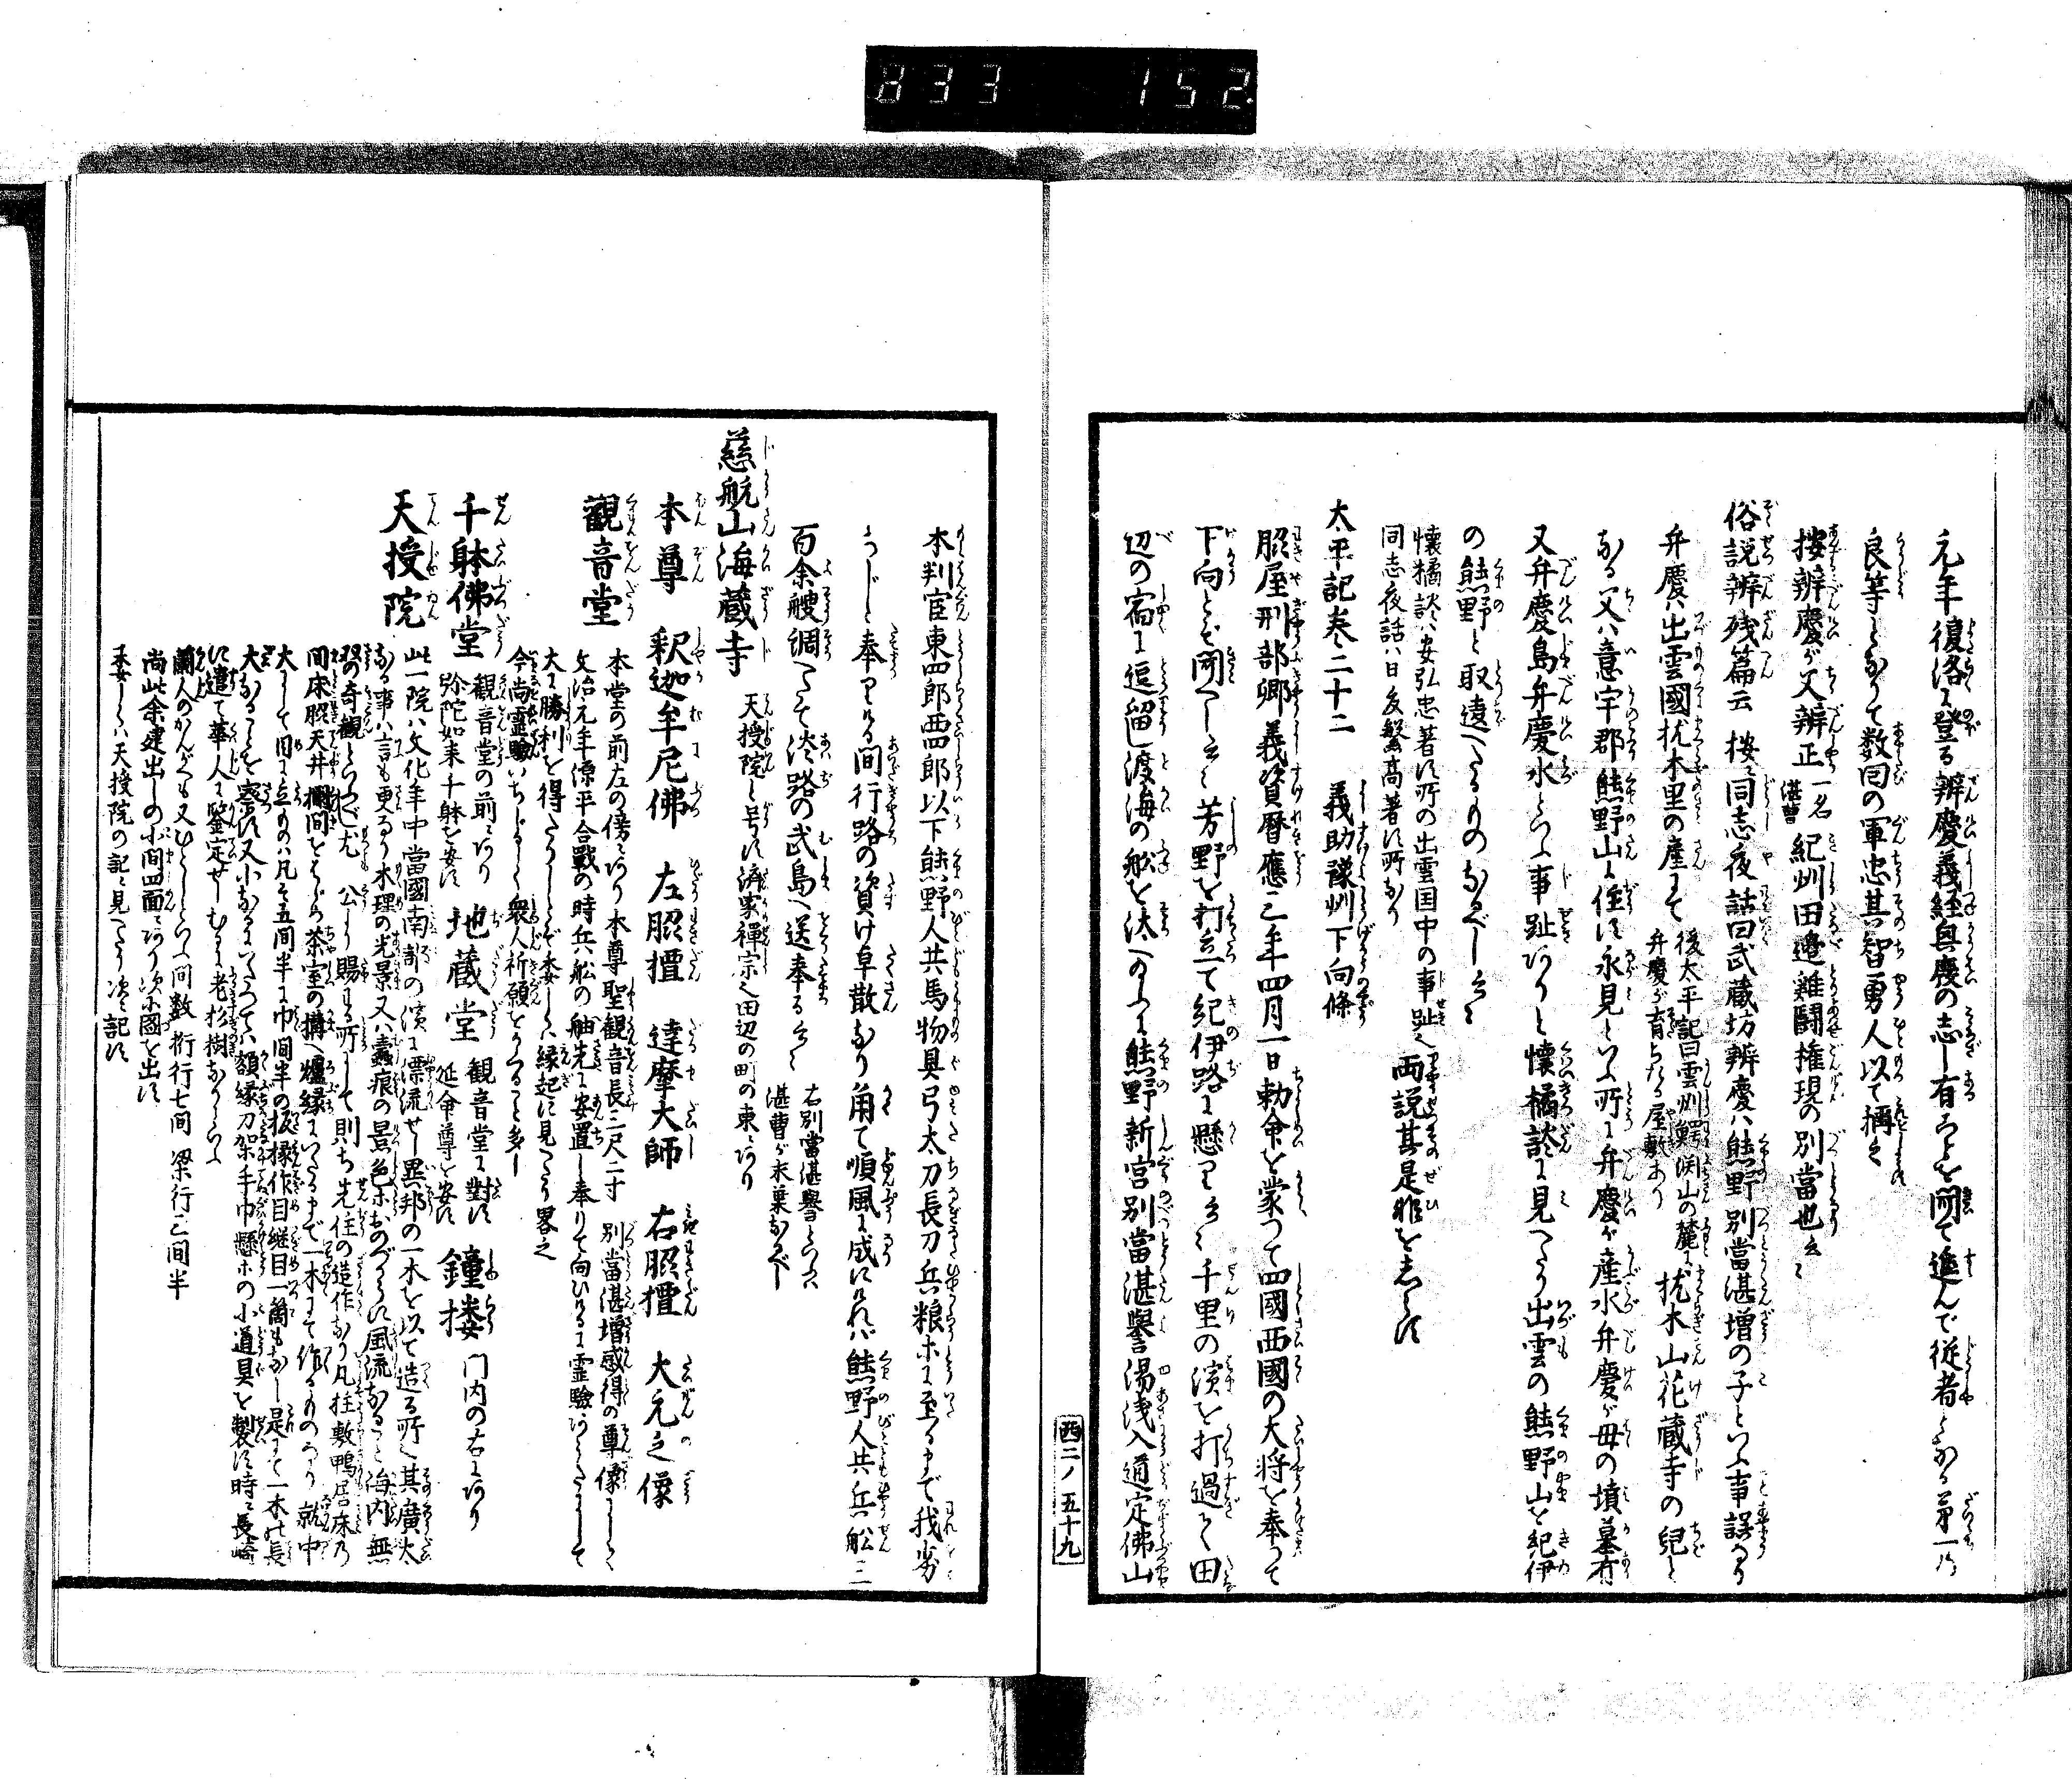 833 152
元年復洛に登る辨慶義経奥慶の志し有ることを聞て進んで従者となる第一の
良等となりて数回の軍忠其智勇人以て稱之
按辨慶が父辨正一名湛曹紀刕田邉雞鬪権現の別當也云々
俗説辨残篇云 按に同志夜話曰武蔵坊辨慶ハ熊野別當湛増の子といふ事誤なる
弁慶ハ出雲國枕木里の産にて 後太平記曰雲州鰐渕山の麓に枕木山花蔵寺の兒と
弁慶が育ちたる屋敷あり
なる父ハ意宇郡熊野山に住に永見といふ所に弁慶が産水弁慶が母の墳墓有
又弁慶島弁慶水といふ事趾ありと懐橘談に見へたり出雲の熊野山を紀伊
の熊野と取違へたるものなるべし云々
懐橘談ハ安弘忠著に所の出雲国中の事趾之
同志夜話ハ日友繁高著に所なり
両説其是非をしらず
太平記巻二十二 義助豫州下向條
脇屋刑部卿義資暦應三年四月一日勅命を蒙つて四國西國の大将を奉つて
下向とぞ聞へし云々芳野を打立て紀伊路に懸り云々千里の濱を打過て田
辺の宿に逗留し渡海の舩を汰へのふに熊野新宮別當湛譽湯浅入道定佛山
西二ノ五十九
本判官東四郎西四郎以下熊野人共馬物具弓太刀長刀兵粮ホに至るまで我劣
らじと奉りける間行路の資け卓散なり角て順風に成にけれバ熊野人共兵舩三
百余艘調へたて淡路の武島へ送奉る云々 右別當湛譽といふハ
湛曹が末葉なるべし
慈航山海蔵寺 天授院と号に済家禪宗之田辺の町の東にあり
本尊 釈迦牟尼佛 左脇檀 達摩大師 右脇檀 大元之像
觀音堂 本堂の前左の傍にあり本尊聖觀音長三尺二寸 別當湛増感得の尊像にして
文治元年源平合戰の時兵舩の舳先に安置し奉りて向ひけるに霊驗あらたにして
大に勝利を得たりしとぞ委しくハ縁起に見へたり畧之
今尚霊驗いちじるしく衆人祈願をかくること多し
千躰佛堂 觀音堂の前にあり
弥陀如来千躰を安に
地蔵堂 觀音堂に對に
延命尊を安に
鐘楼 門内の右にあり
天授院 此一院ハ文化年中當國南部の濱に漂流せし異邦の一木を以て造る所之其廣大
なる事ハ言も更なり木理の光景又ハ蠹痕の景色ホおのづからに風流なること海内無
双の奇觀といふべし尤 公より賜りる所にして則ち先住の造作なり凡柱敷鴨居床乃
間床脇天井欄間をはじめ茶室の搆爐縁にいたるまで一木にて作るものなり就中
大にして目に立ものハ凡そ五間半に巾一間半の板椽作目継目一箇もなし是にて一木の長
大なることを察に又小なるにいたつてハ額縁刀架手巾懸ホの小道具を製に時に長崎
に遣て華人に鑒定せしむるに老杉樹なりといふ
蘭人のかんがへも又ひとしといふ間数 桁行七間 梁行三間半
尚此余建出しの小間四面にあり次に圖を出に
委しくハ天授院の記に見へたり次に記に